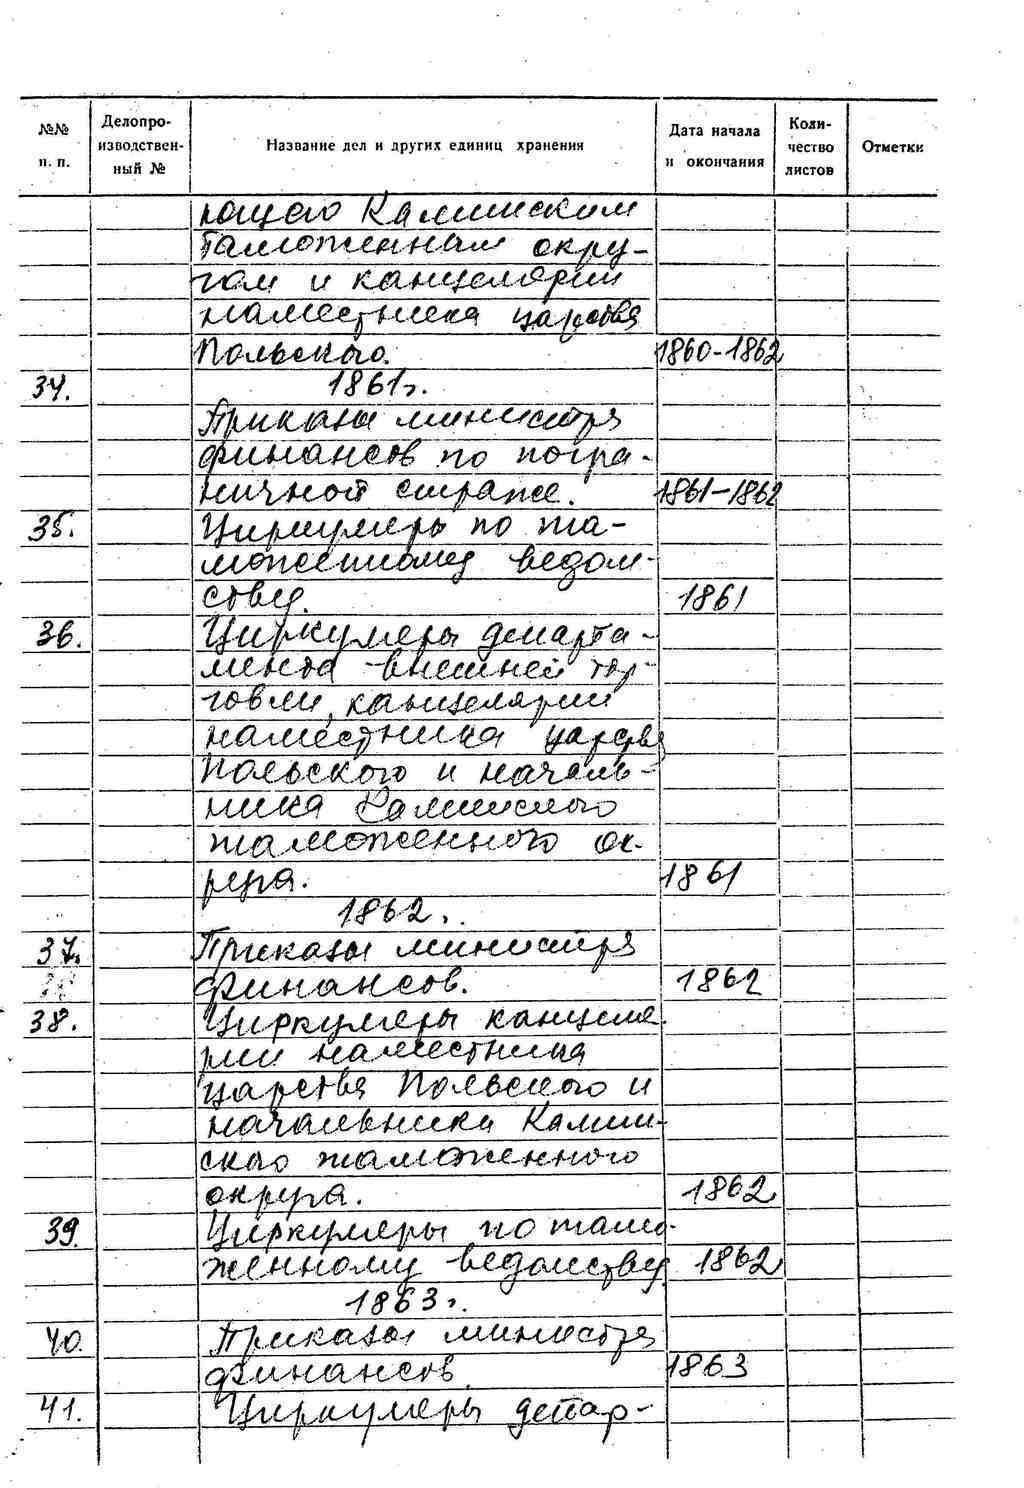 №№ п. п. Делопро- изводствен- ный № Название дел и других единиц хранения Дата начала и окончания Коли- чество листов Отметки
ющего Калишским
таможенным окру-
гом и канцелярии
наместника царства
Польского. 1860-1862
34. 1861г.
Приказы министра
финансов по погра-
ничной страже. 1861-1862
35. Циркуляры по та-
моженному ведом-
ству. 1861
36. Циркуляры департа-
мента внешней тор-
говли, канцелярии
наместника царства
Польского и началь-
ника Калишского
таможенного ок-
руга. 1861
1862г.
37. Приказы министра
финансов. 1862
38. Циркуляры канцеля-
рии наместника
царства Польского и
начальника Калиш-
ского таможенного
округа. 1862
39. Циркуляры по тамо-
женному ведомству 1862
1863г.
40. Приказы министра
финансов. 1863
41. Циркуляры депар-